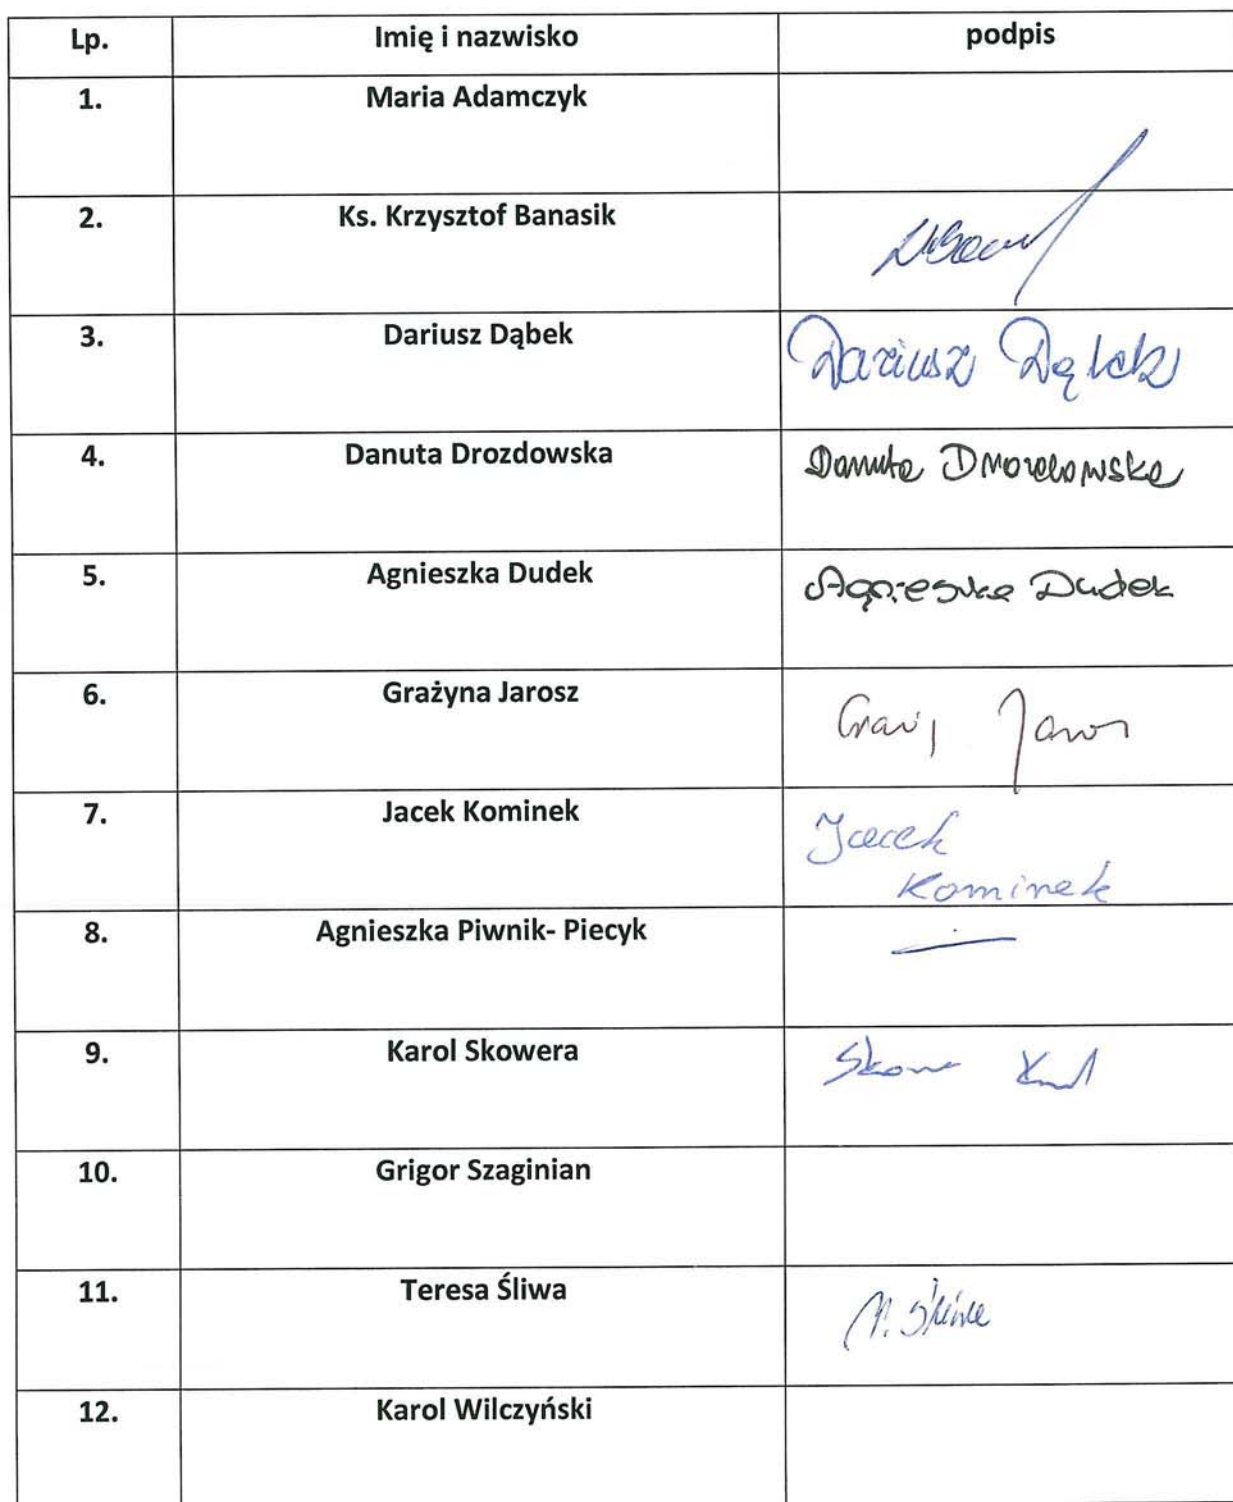 Lp. Imię i nazwisko podpis
1. Maria Adamczyk
2. Ks. Krzysztof Banasik
3. Dariusz Dąbek Dariusz Dąbek
4. Danuta Drozdowska Danuta Drozdowska
5. Agnieszka Dudek Agnieszka Dudek
6. Grażyna Jarosz
7. Jacek Kominek Jacek
Kominek
8. Agnieszka Piwnik- Piecyk
9. Karol Skowera
10. Grigor Szaginian
11. Teresa Śliwa
12. Karol Wilczyński